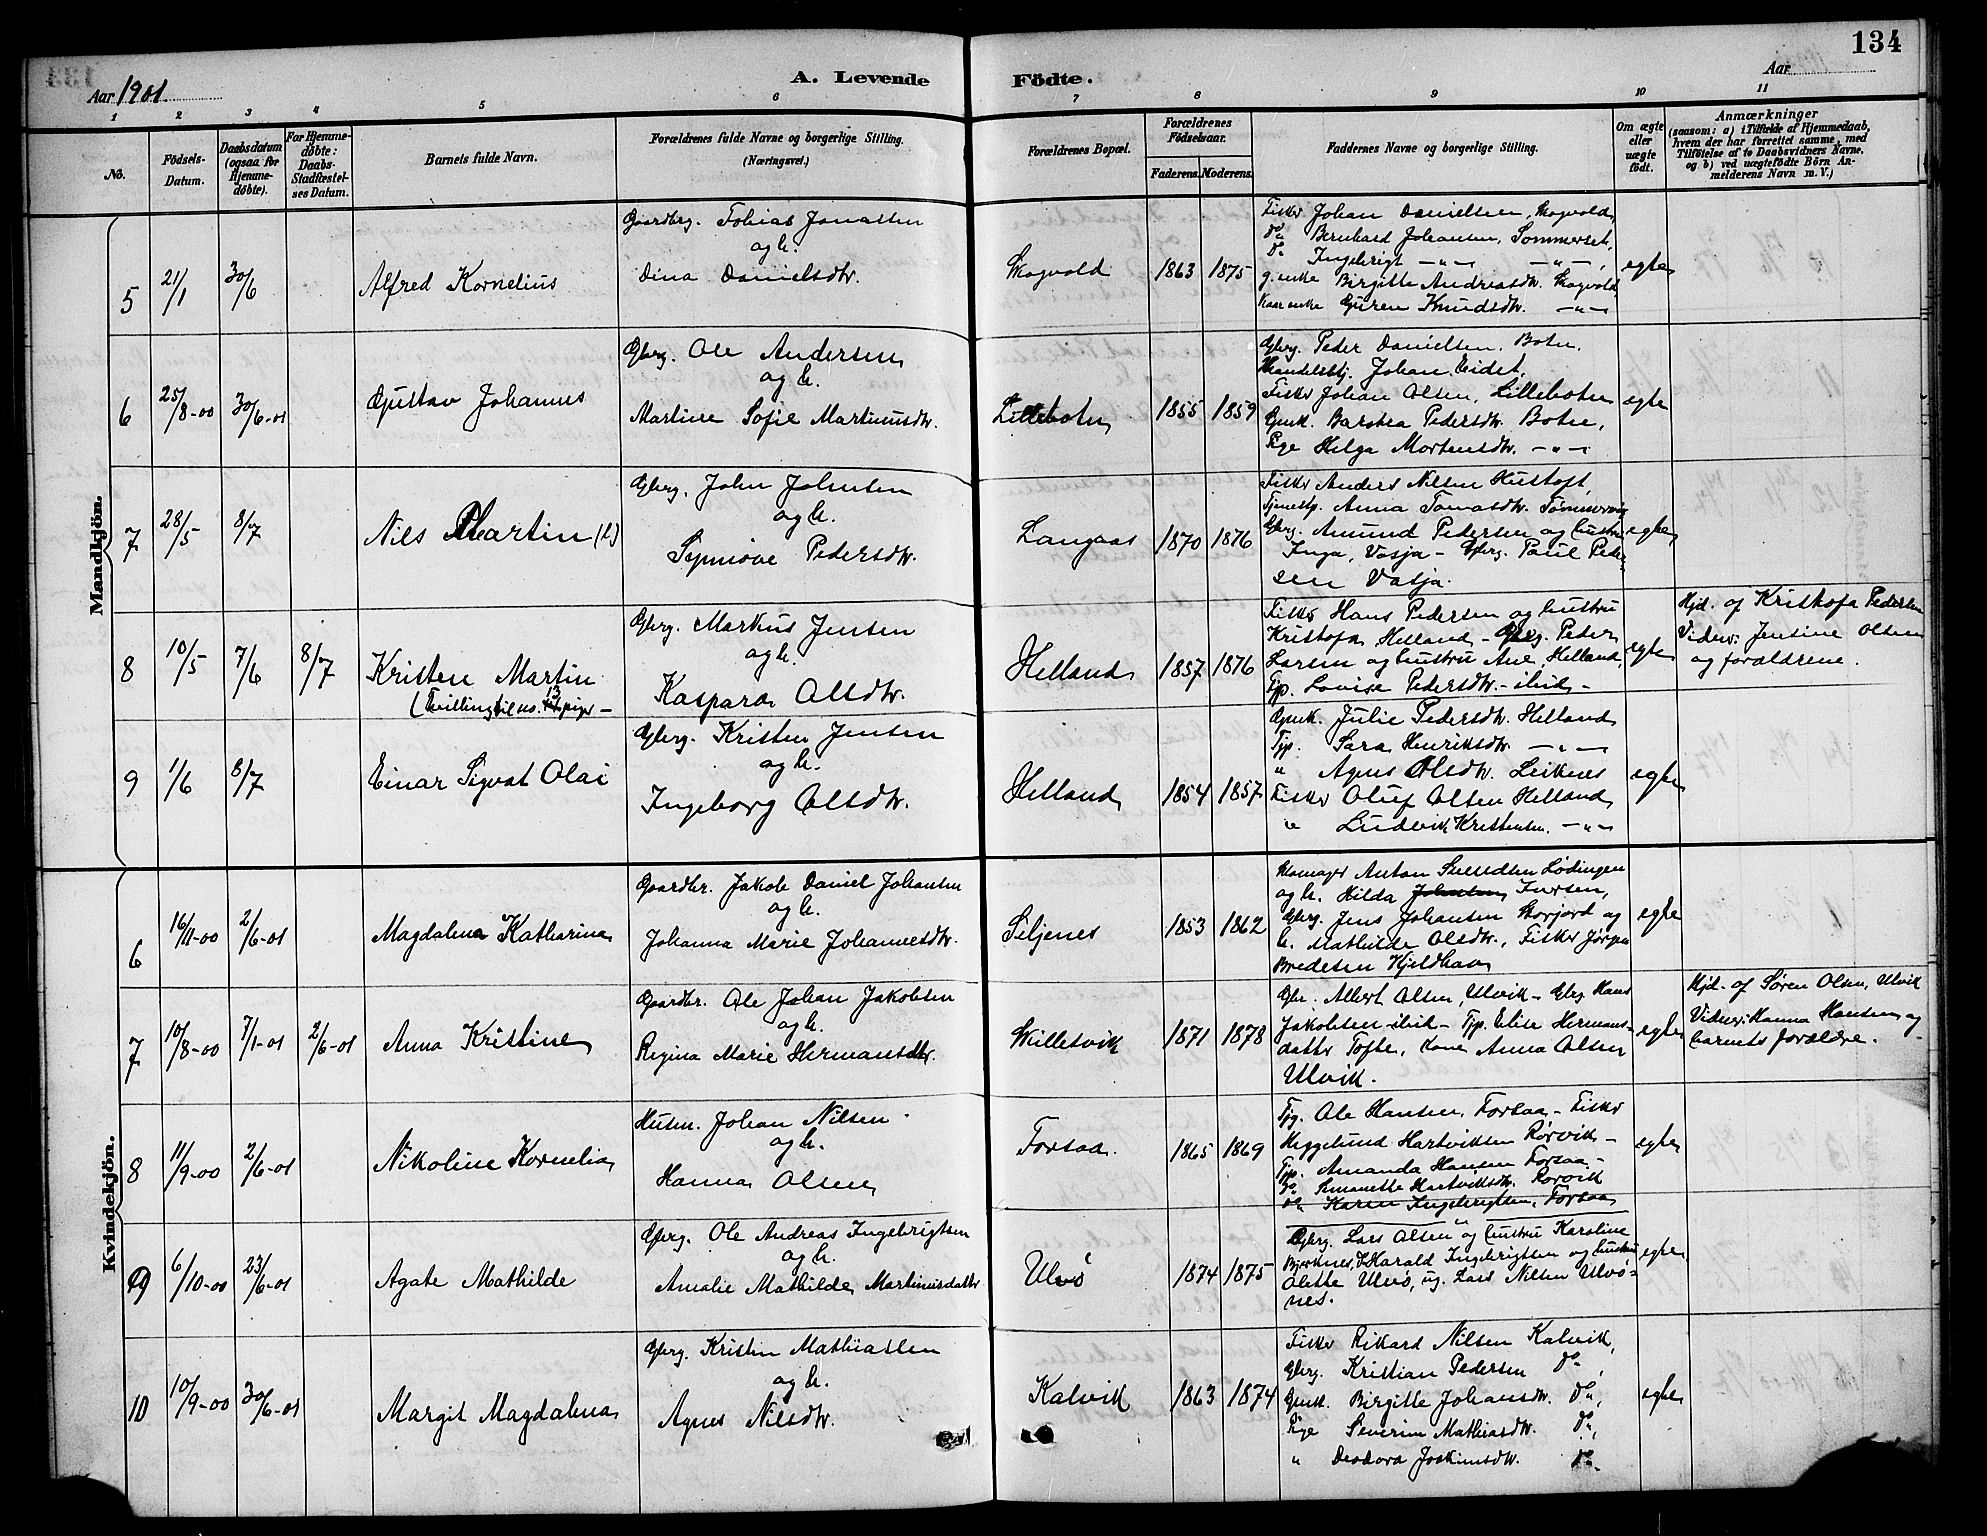 134
Aar 1901
A. Levende Födte.
Aar
1 2 3 4 5 6 7 8 9 10 11
No.
Födsels-Datum.
Daabsdatum (ogsaa for Hjemme-döbte).
For Hjemme-döbte: Daabs-Stadfæstelses Datum.
Barnets fulde Navn.
Forældrenes fulde Navne og borgerlige Stilling.
(Næringsvei.)
Forældrenes Bopæl.
Forældrenes Födselsaar.
Faderens. Moderens.
Faddernes Navne og borgerlige Stilling.
Om ægte eller uægte födt.
Anmærkninger
(saasom: a) i Tilfælde af Hjemmedaab, hvem der har forrettet samme, med Tilföielse af to Daabsvidners Navne. og b) ved uægtefödte Börn Anmelderens Navn m. V.)
Mandkjön.
5 21/1 30/6 Alfred Kornelius
Gaardbrg. Tobias Jonassen
og h.
Dina Danielsdtr.
Skogvold 1863 1875
Fisker Johan Danielsen, Skogvold,
do Bernhard Johansen, Sommerset,
do Ingebrigt —"— —"—,
g. enke Birgitte Andreasdtr. Skogvold,
Kaarenke Guren Knudsdtr. —"—
egte
6 25/8-00 30/6-01 Gustav Johannes
Gbrg. Ole Andersen
og h.
Martine Sofie Martinusdtr.
Lillebotn 1855 1859
Gbrg. Peder Danielsen, Botn,
Handelsbtj. Johan Eidet,
Fisker Johan Olsen, Lillebotn
Gmk. Barobra Pedersdtr. Botn,
Pige Helga Mortensdtr. —"—
egte
7 28/5 8/7 Nils Martin (l)
Gbrg. John Johnsen
og h.
Synnöve Pedersdtr.
Langaas 1870 1876
Fisker Anders Nilsen Hustoft,
Tjenestp. Anna Tomasdtr. Tömmervig
Gbrg. Amund Pedersen og hustru
Inga, Vasja - Gbrg. Paul Peder-
sen Vasja.
egte
8 10/5 7/6 8/7 Kristen Martin
(Tvilling til no. 13 piger —
Gbrg. Markus Jensen
og h.
Kaspara Olsdtr.
Helland 1857 1876
Fisker Hans Pedersen og hustru
Kristofa Helland - Gbrg. Peder
Larsen og hustru Ane, Helland,
Tjp. Lovise Pedersdtr. - ibid -
egte
Hjd. af Kristofa Pedersen
Vidner: Jensine Olsen
og forældrene.
9 1/6 8/7 Einar Sigvat Olai
Gbrg. Kristen Jensen
og h.
Ingeborg Olsdtr.
Helland 1854 1857
Gmk. Julie Pedersdtr. Helland
Tjp. Sara Henriksdtr. —"—
" Agnes Olsdtr. Leiknes
Fisker Oluf Olsen Helland
" Ludvik Kristensen. —"—
egte
Kvindekjön.
6 16/11-00 2/6-01 Magdalena Katharina
Gaardbr. Jakob Daniel Johansen
og h.
Johanna Marie Johannesdtr.
Seljenes 1853 1862
Anton Lödingen
og h. Hilda Johnsen Iversen,
Gbrg. Jens Johansen Storjord og
h. Mathilde Olsdtr., Fisker Jörgen
Bredesen Kjeldhav
egte
7 10/8-00 7/1-01 2/6-01 Anna Kristine
Gaardbr. Ole Johan Jakobsen
og h.
Regina Marie Hermansdtr.
Skilletvik 1871 1878
Gbr. Albert Olsen, Ulvik - Gbrg. Hans
Jakobsen - ibid - Tjp. Elise Hermans-
datter Tofte, Kone Anna Olsen
Ulvik.
egte
Hjd. af Sören Olsen, Ulvik
Vidner: Hanna Hansen og
barnets forældre.
8 11/9-00 2/6-01 Nikoline Kornelia
Husm. Johan Nilsen
og h.
Hanna Olsen
Forsaa. 1865 1869
Tjg. Ole Hansen, Forsaa - Fisker
Heggelund Hartviksen Rörvik -
Tjp. Amanda Hansen Forsaa -
do Simonette Hartviksdtr. Rörvik
do Karen Ingebrigtsen, Forsaa
egte
9 6/10-00 23/6-01 Agate Mathilde
Gbrg. Ole Andreas Ingebrigtsen
og h.
Amalie Mathilde Martinusdatter
Ulvö 1874 1875
Gbrg. Lars Olsen og hustru Karoline
Bjerknes, do Harald Ingebrigtsen og hustru
Olette Ulvö, ug. Lars Nilsen Ulvö-
nes.
egte
10 10/9-00 30/6-01 Margit Magdalena
Gbrg. Kristen Mathiassen
og h.
Agnes Nilsdtr.
Kalvik 1863 1874
Fisker Rikard Nilsen Kalvik,
Gbrg. Kristian Pedersen do,
Gmk. Birgitte Johansdtr. do,
Pige Severine Mathiasdtr. do,
" Deodora Joakimsdtr. do
egte